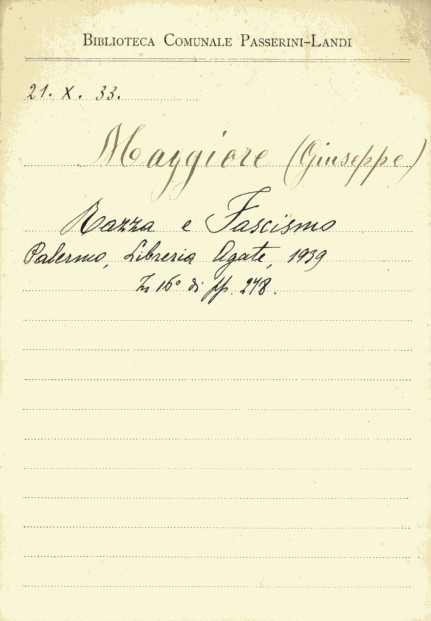 BIBLIOTECA COMUNALE PASSERINI-LANDI
21. X. 33.
Maggiore (Giuseppe)
Razza e Fascismo
Palermo, Libreria Agate, 1939
In 16° di pp. 278.